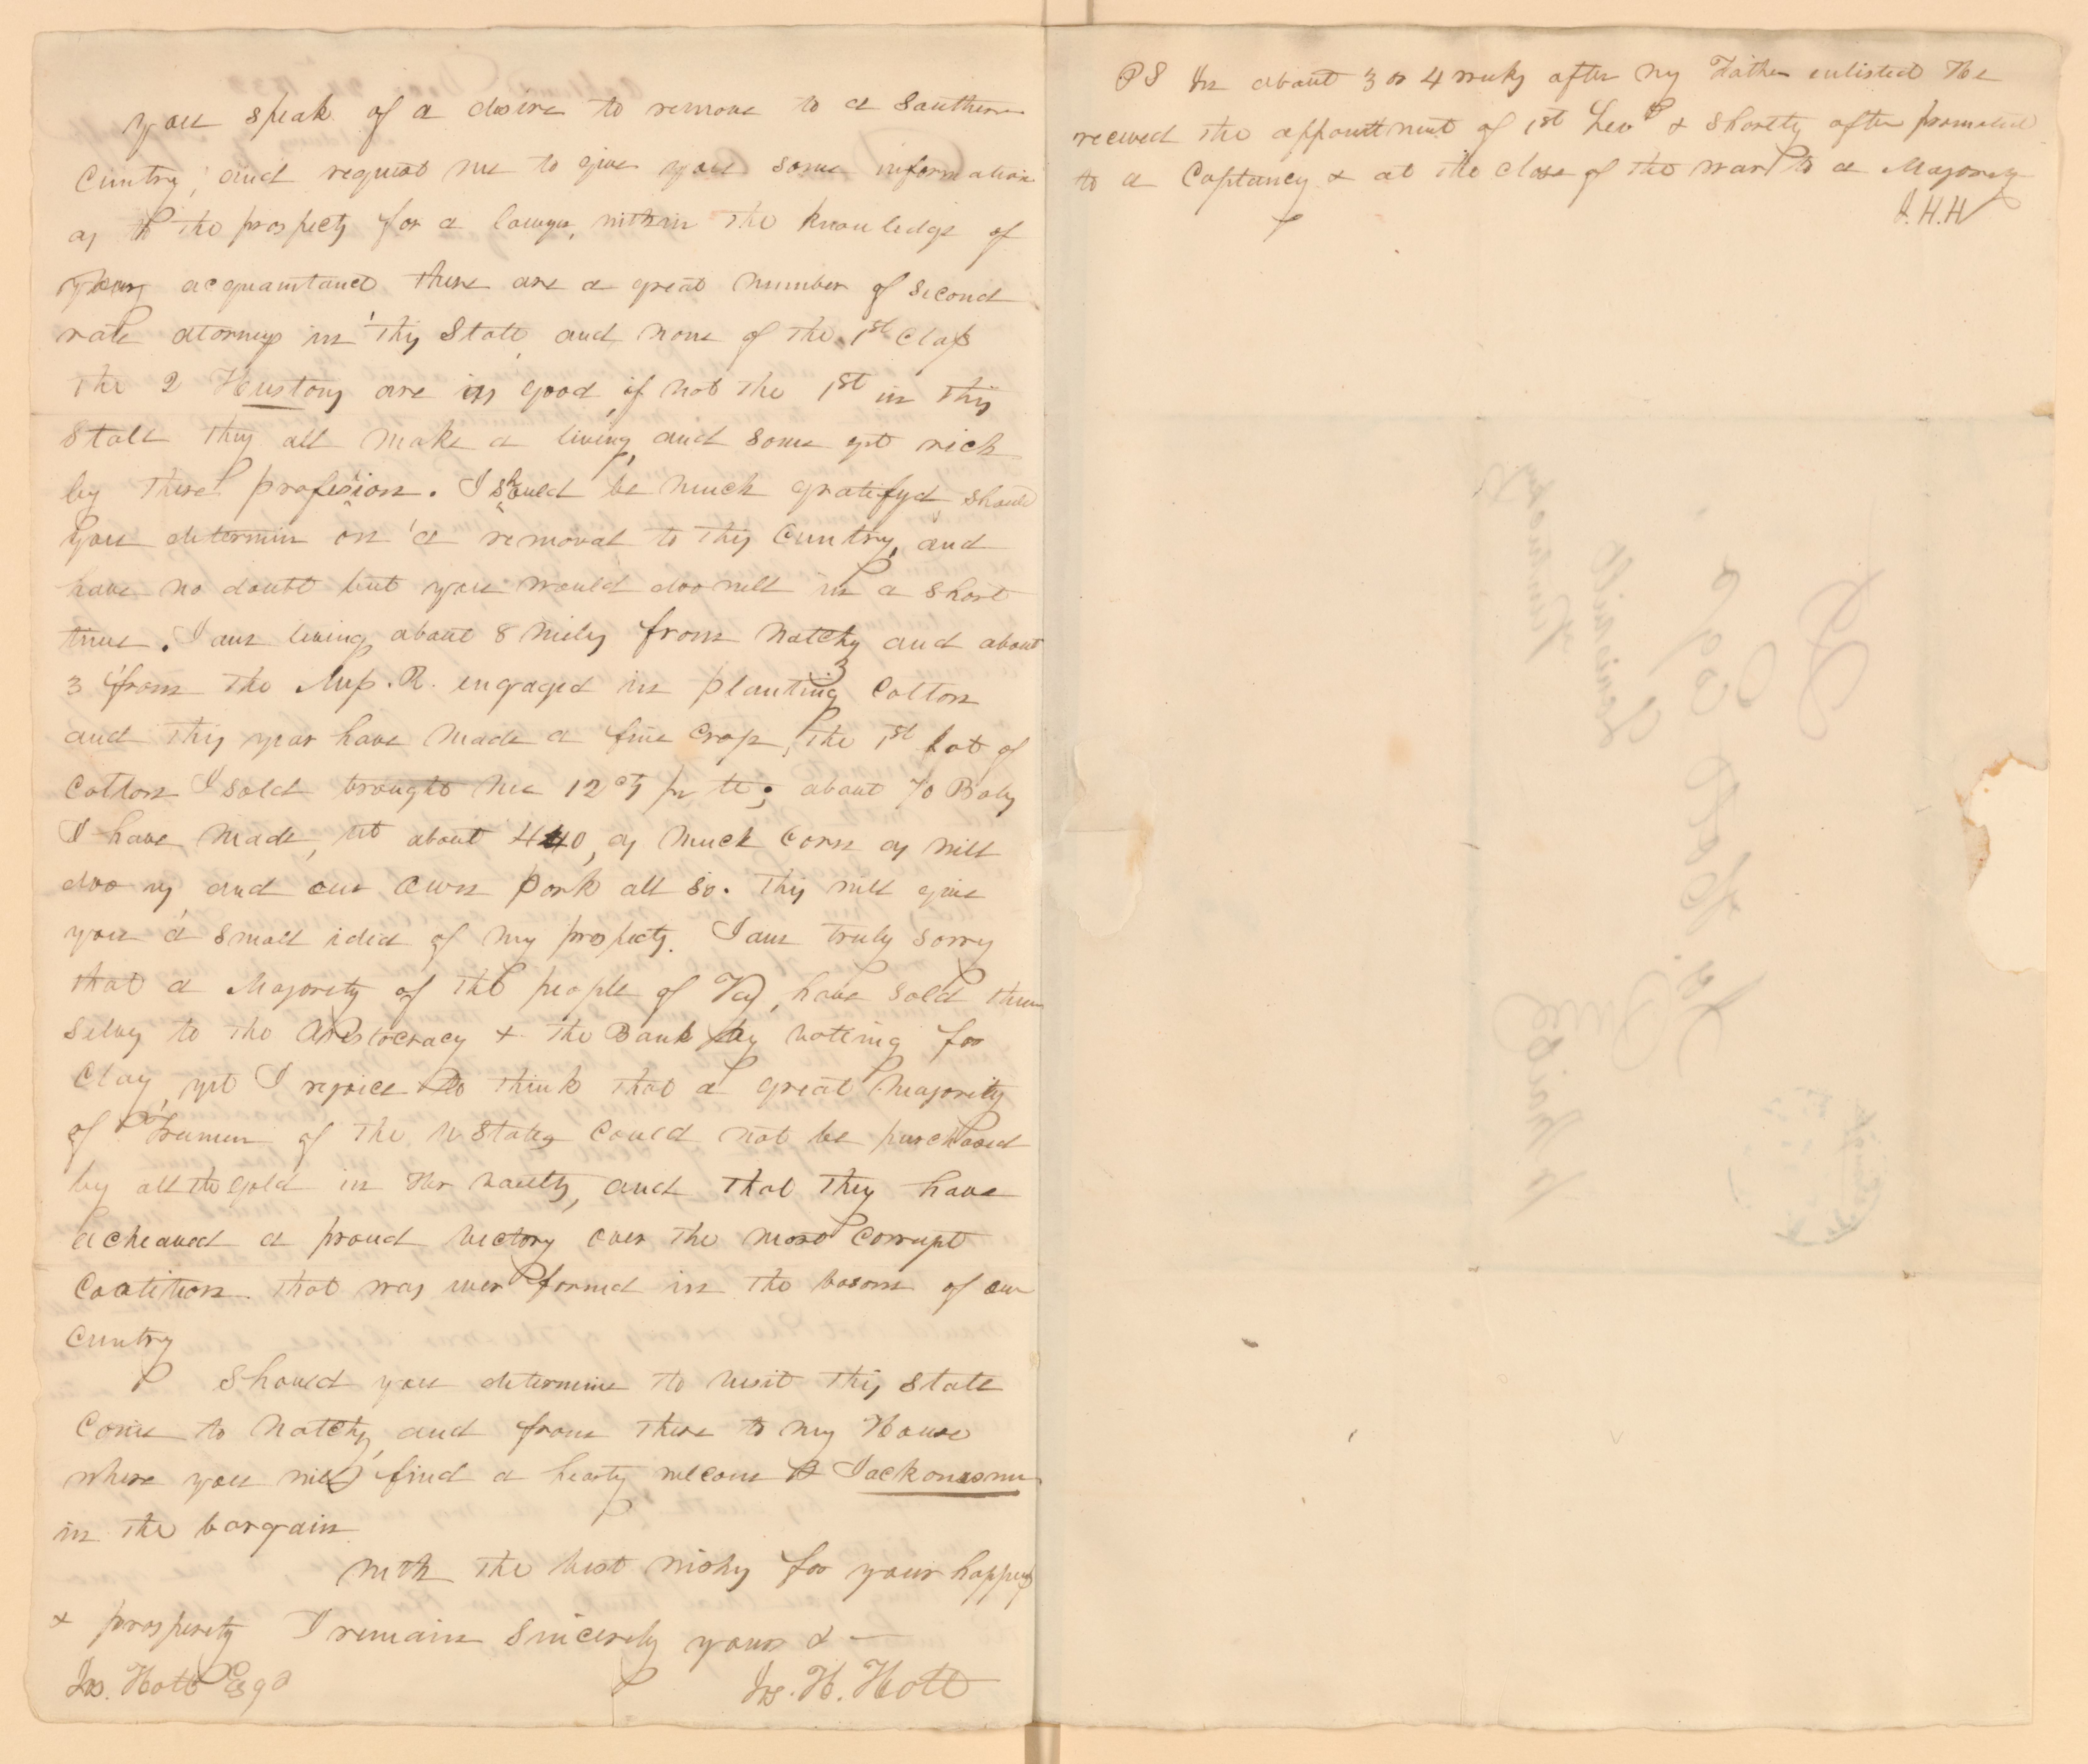 you speak of a desire to remove to a Southern
Cuntry, and request me to give you some information
as to the prospects for a lawyer, within the knowledge of
your acquaintance there are a great number of second
rate atorneys in this State, and none of the 1st Class
the 2 Hustons are as good, if not the 1st in this
State they all make a living, and some get rich
by there profession. I should be much gratifyd should
you determin on a removal to this Cuntry, and
have no doubt but you would doo well in a short
time. I am living about 8 miles from Natchs and about
3 from the Misp. R. engaged in planting Cotton
and this year have made a fine Crop, the 1st Lot of
Cotton I sold brought me 12 cts pr lb; about 70 Bales
I have made, wt about 440, as much Corn as will
doo us, and our own Pork all so. This will give
you a small idea of my prospects. I am truly sorry
that a Majority of the people of Ky, have sold them
selves to the Aristocracy & the Bank by voting for
Clay, yet I rejoice to think that a great Majority
of Freemen of the U States could not be purchased
by all the gold in Her vaults, and that they have
acheaved a proud victory over the most Corrupt
Coalition that was ever formed in the bosom of our
Cuntry
Should you determine to visit this State
Come to Natchs, and from there to my House
where you will find a hearty welcome & Jackonasm
in the bargain
with the best wishes for your happys
& prosperity I remain Sincerely yours & —
Js. Holt Esqr Jos. H. Holt
PS In about 3 or 4 weeks after my Father enlisted He
receved the appointment of 1st Leut & Shortly after promoted
to a Captancy & at the close of the war to a Majorcy
J. H. H